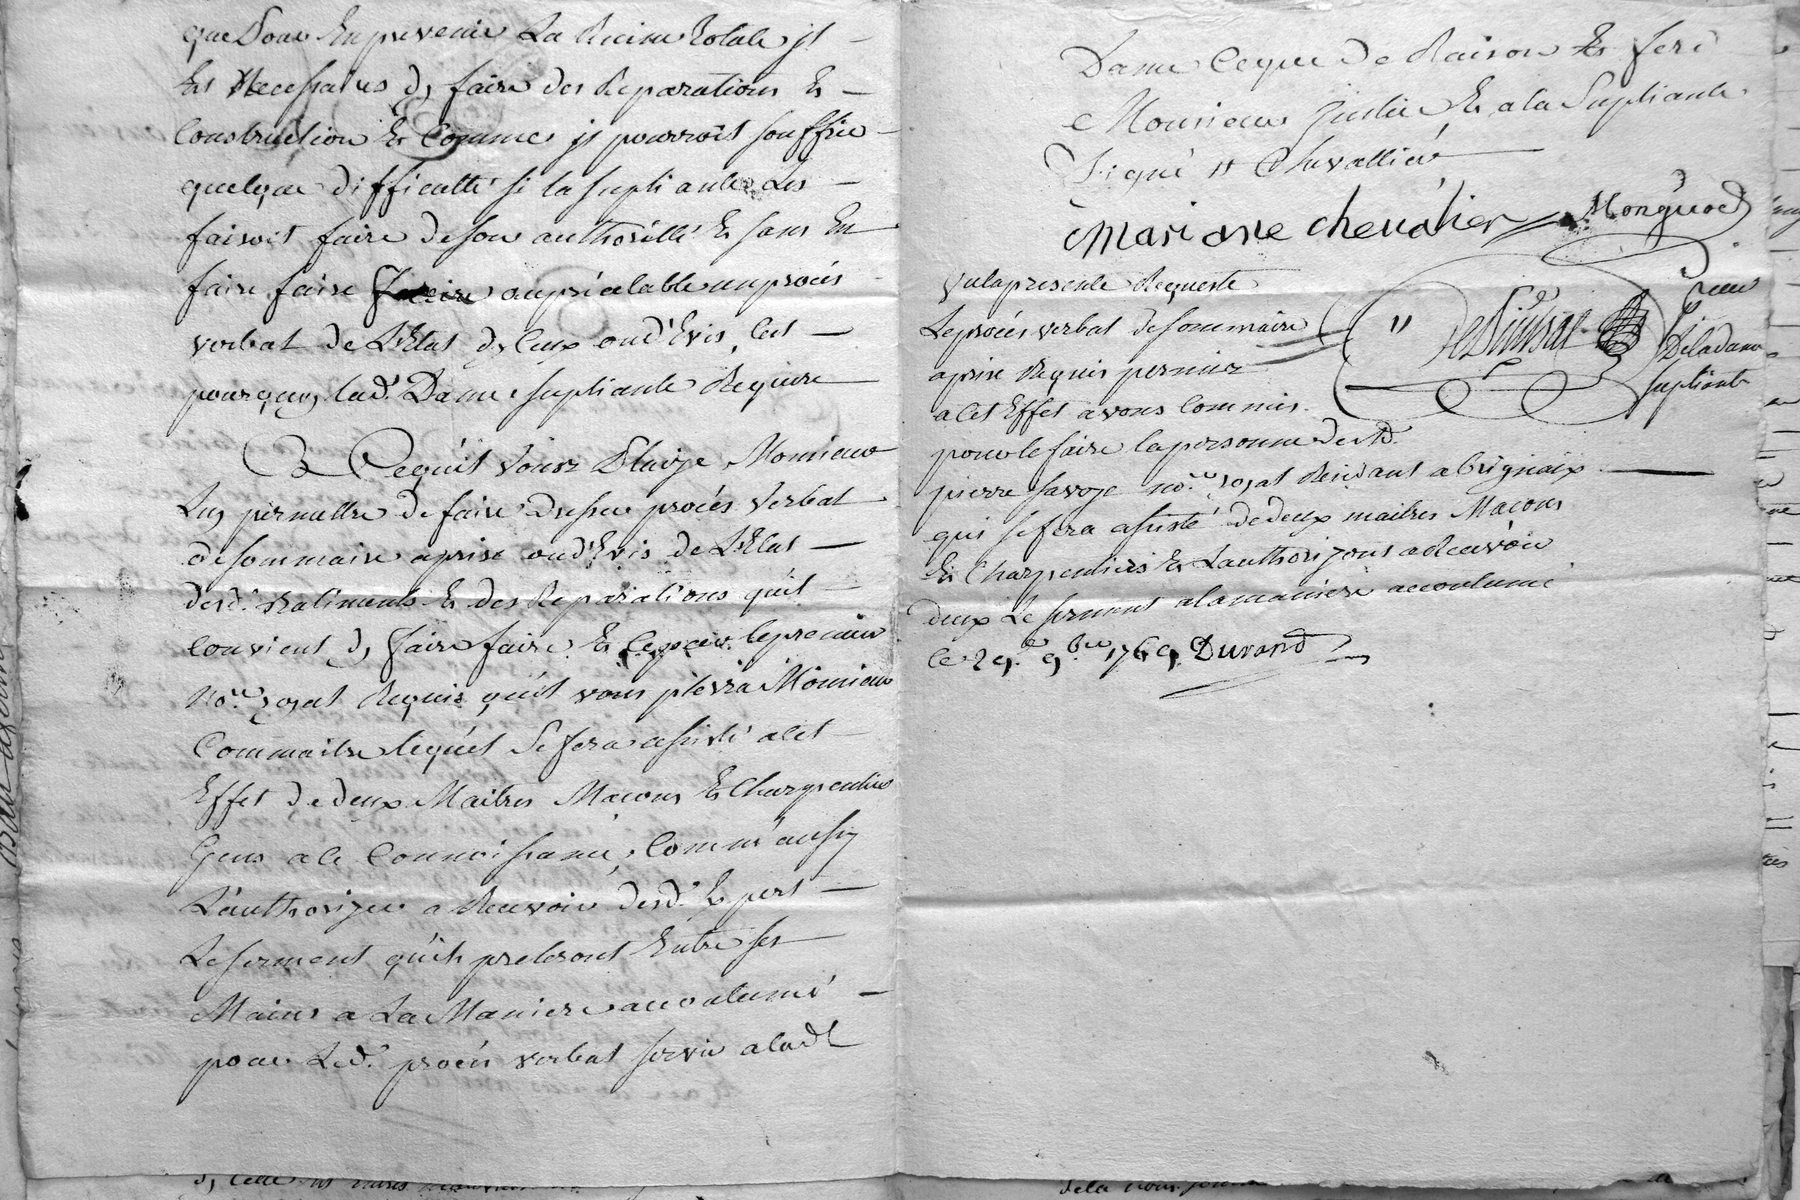 que Pour En prevenir La Ruine totale jl
Est Necessaires dy faire des Reparations Et
Construction Et Comme jl pourroit souffrir
quelque difficulté si la supliante Les
faisoit faire de son authorité Et sans En
faire faire au préalable un procés
verbal de L'Etat dyceux ou d'Evis, Cest
pourquoy lad.e Dame supliante Requiere
Ce Requis Vous Plaize Monsieur
Luy permettre de faire dresser procés verbal
de sommaire aprise ou d'Evis de L'Etat
desd. Batiments Et des Reparations quil
Convient dy faire faire Et Ce par le premier
No.re royal Requis quil vous pleira Monsieur
Commaitre lequel Se fera assisté a cet
Effet de deux Maitres Macons Et Charpentier
Gens a ce Connoissant, Comm'aussy
L'authorizer a Recevoir desd. Experts
Le serment quils preteront Entre ses
Mains a La Maniere accoutumé
pour Led. procés verbal servir a lad.e
Dame Ceque de Raison Et fere
Monsieur justice Et a la Supliante
Signé Chevallier
Marianne chevalier Monguod
Vu la presente Requeste
Le procés verbal de sommaire
aprise Requis permis
a cet Effet avons Commis
De la dame
supliante
pour le faire la personne de Md.
pierre Savoye no.re royal Residant a Brignaix
qui se fera assisté de deux maitres Macons
Et Charpentiers Et L'authorizons a Recevoir
deux Le serment a la maniere accoutumé
Ce 29.e 9.bre 1769. Durand